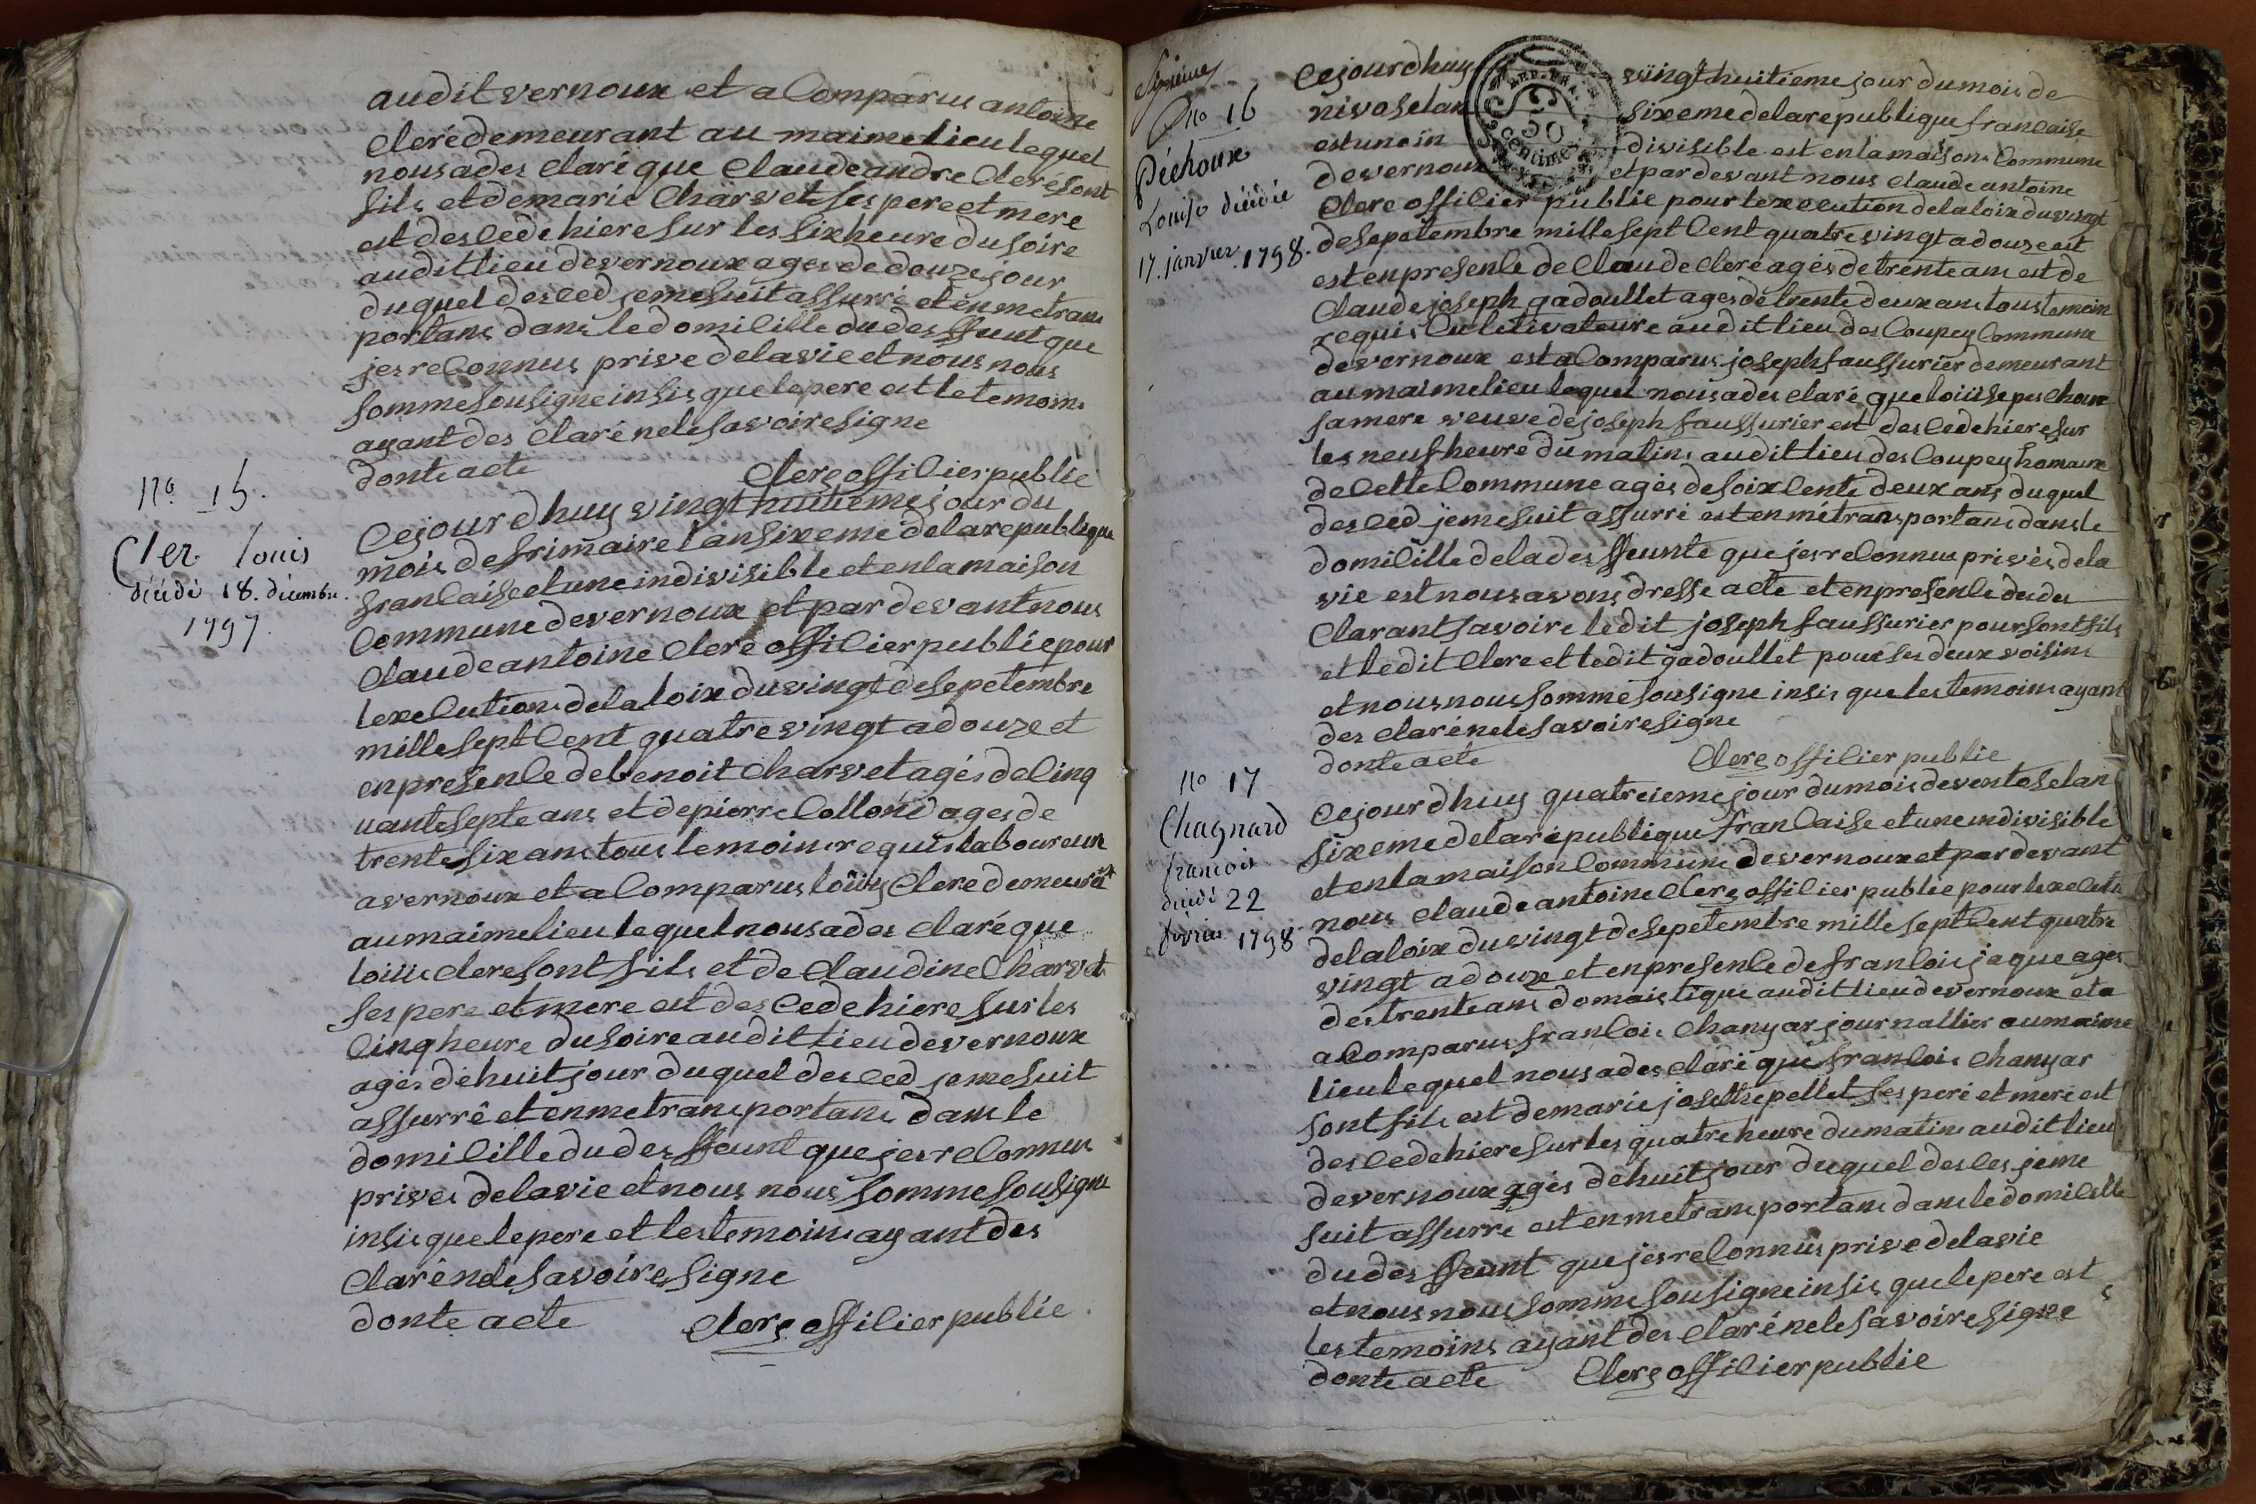 audit vernoux et a Comparus antoine
Clere demeurant au maime lieu le quel
nous a des claré que Claude andre Clere sont
fils et de marie Charvet ses pere et mere
est des cede hiere sur les six heure du soire
audit lieu de vernoux ages de douze jour
du quel des ced je me suit assurré et en me trans
portans dans le domicille du des ffunt que
jes reconnus prive de la vie et nous nous
somme sousigne insis que le pere est le temoins
ayant des claré ne le savoire signe
donte acte Clerc officier public
no 15.
Cler louis
décédé 18. décembre.
1797.
Ce jour dhuy vingt huitieme jour du
mois de frimaire lan sixeme de la republique
francaise et une indivisible et en la maison
Commune de vernoux et par devant nous
Claude antoine Clere officier public pour
lexecution de la loix du vingt de sepetembre
mille sept Cent quatre vingt a douze et
en presence de benoit Charvet agés de Cinq
uante septe ans et de pierre Collond ages de
trente six ans tous temoins requis laboureur
a vernoux et a Comparus loüis Clere demeurãt
au maime lieu le quel nous a des claré que
loüis Clere sont fils et de Claudine Charvet
ses pere et mere est des cede hiere sur les
Cinq heure du soire audit lieu de vernoux
agés de huit jour du quel des ced je me suit
assurré et en me trans portans dans le
domicille du des ffeunt que jes reconnus
prives de la vie et nous nous somme sousigne
insis que le pere et les temoins ayant des
claré ne le savoire signe
donte acte Clerc officier public
Sixieme
no 16
Péchoux
Louise décédée
17. janvier. 1798.
Ce jour dhuy vüingt huitieme jour du mois de
nivose lan sixeme de la republique francaise
est une in divisible est en la maison Commune
de vernoux et par devant nous Claude antoine
Clere officier public pour lexecution de la loix du vingt
de sepetembre mille sept Cent quatre vingt a douze est
est en presence de Claude Clere agés de trente ans est de
Claude joseph gadoullet ages de trente deux ans tous temoin
requis Culetivateure audit lieu des Coupey Commune
de vernoux est a Comparus joseph faussurier demeurant
au maime lieu le quel nous a des claré que loüise pes choux
sa mere veuve de joseph faussurier est des cede hiere sur
les neuf heure du matins audit lieu des Coupey homaux
de Cette Commune agés de soix cente deux ans du quel
des ced je me suit assurré est en me trans portans dans le
domicille de la des ffeunte que jes reconnus privés de la
vie est nous avons dresse acte et en presence du de
Clarant savoire ledit joseph faussurier pour sont fils
et ledit Clere et ledit gadoullet pour ses deux voisins
et nous nous somme sousigne insis que les temoins ayant
des claré ne le savoire signe
donte acte Clerc officier public
no 17
Chagnard
francois
décédé 22
février 1798
Ce jour dhuy quatreieme jour du mois de ventose lan
sixeme de la republique francaise et une indivisible
et en la maison Commune de vernoux et par devant
nous Claude antoine Clerc officier public pour lexecuti
de la loix du vingt de sepetembre mille sept Cent quatre
vingt a douze et en presence de francois jaque ages
des trente ans domaistique audit lieu de vernoux et a
a Comparus francois Chanyar journallier au maime
lieu le quel nous a des claré que francois Chanyar
sont fils est de marie josette pellet ses pere et mere est
des cede hiere sur les quatre heure du matins audit lieu
de vernoux agés de huit jour du quel des ces je me
suit assurré est en me trans portans dans le domicille
du des ffeunt que jes reconnus prive de la vie
et nous nous somme sousigne insis que le pere est
les temoins ayant des claré ne le savoire signe
donte acte Clerc officier public